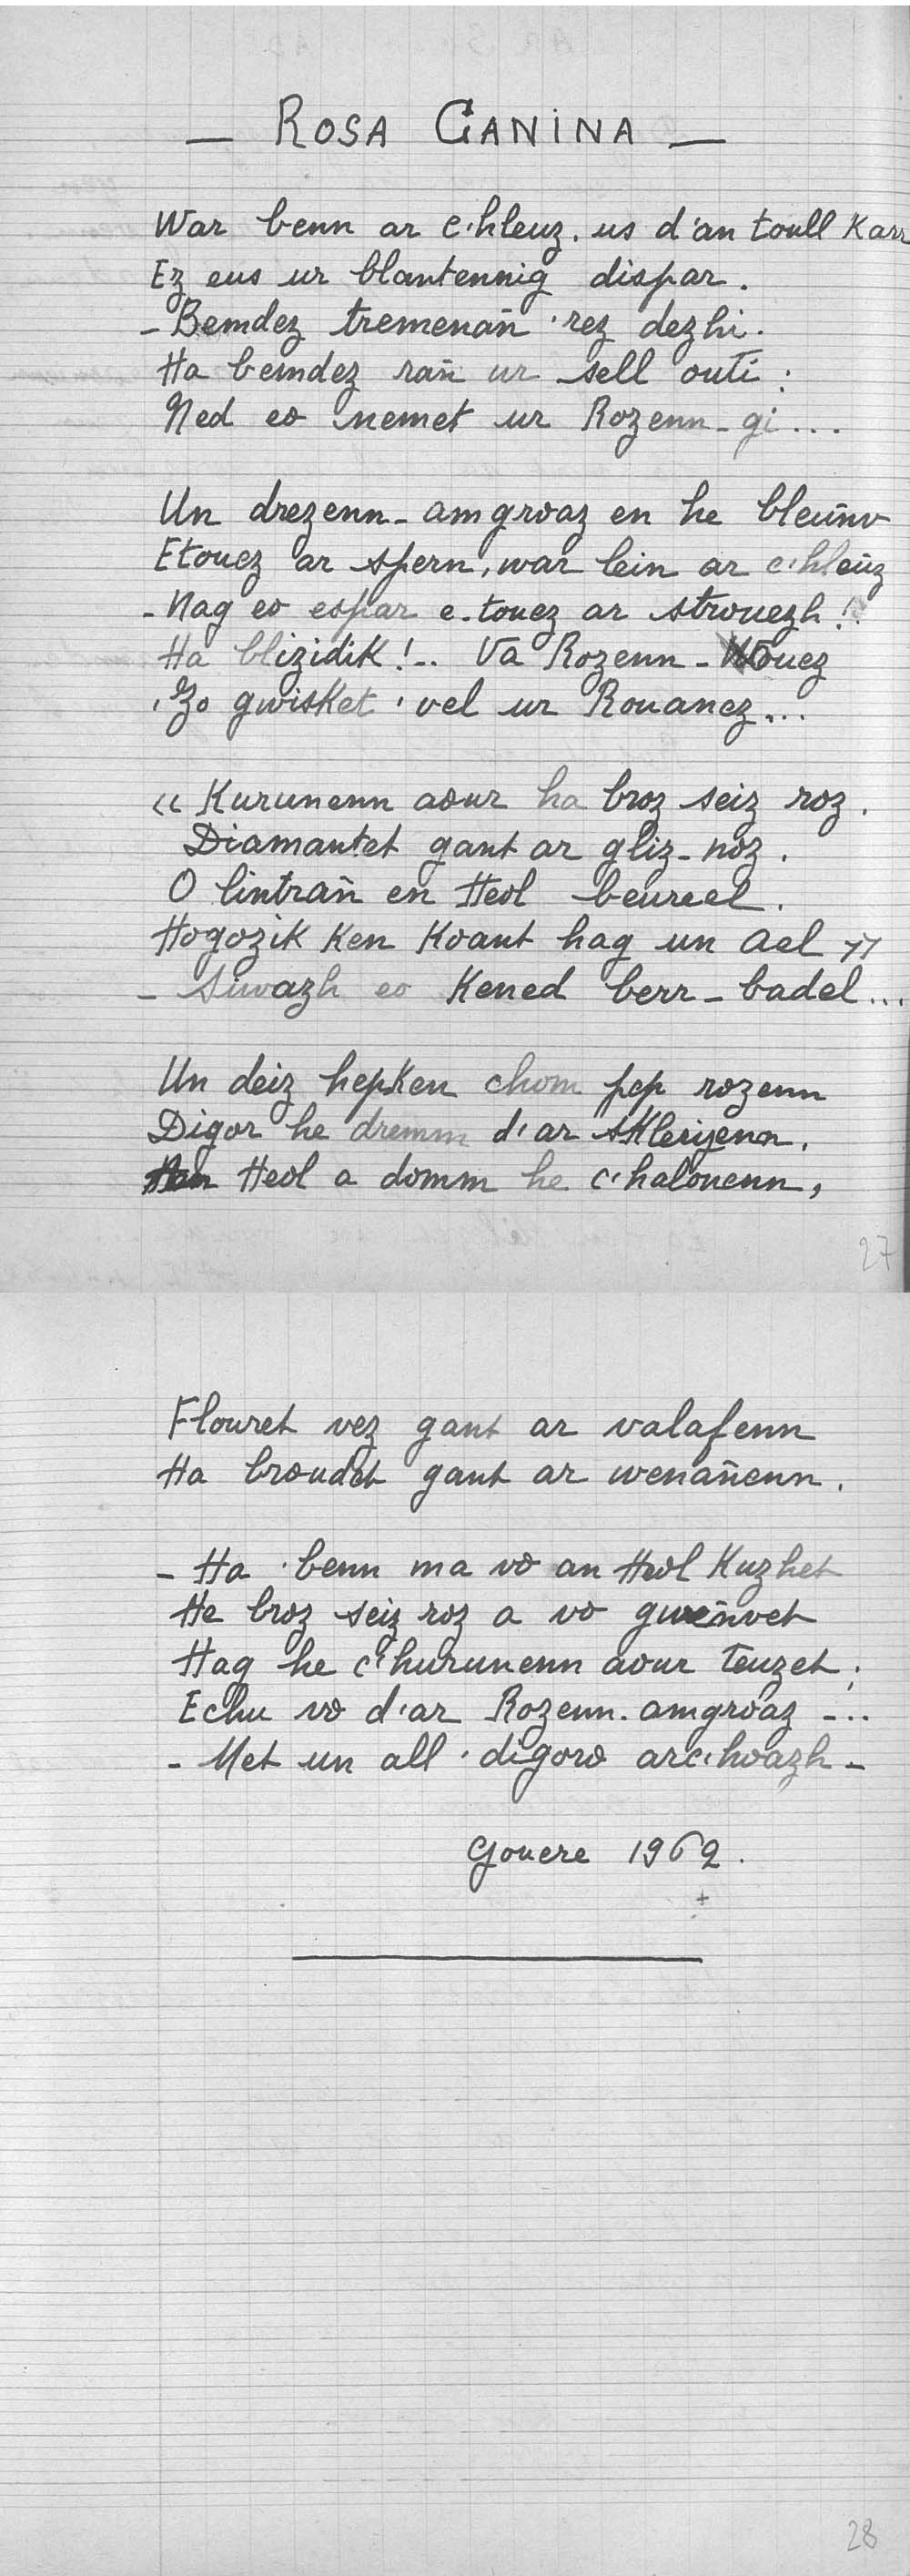 — ROSA CANINA —
War benn ar c'hleuz. us d'an toull Karr
Ez eus ur blantennig dispar.
- Bemdez tremenañ 'rez dezhi.
Ha bemdez rañ ur sell outi :
Ned eo nemet ur Rozenn-gi...
Un drezenn-amgroaz en he bleünv
Etouez ar spern, war lein ar c'hleüz
- Nag eo espar e-touez ar strouezh !
Ha blizidik !.. Va Rozenn-Wouez
'Zo gwisket 'vel ur Rouanez...
« Kurunenn aour ha broz seiz roz.
Diamantet gant ar gliz-noz.
O lintrañ en Heol beureel.
Hogozik Ken Koant hag un Ael »
- Siwazh eo Kened berr-badel...
Un deiz hepken chom pep rozenn
Digor he dremm d'ar sklerijenn.
Heol a domm he c'halouenn,
27
Flouret vez gant ar valafenn
Ha broudet gant ar wenañenn.
- Ha 'benn ma vo an Heol Kuzhet
He broz seiz roz a vo gwenvet
Hag he c'hurunenn aour teuzet ;
Echu vo d'ar Rozenn-amgroaz -...
- Met un all 'digoro arc'hoazh -
Gouere 1962.
28